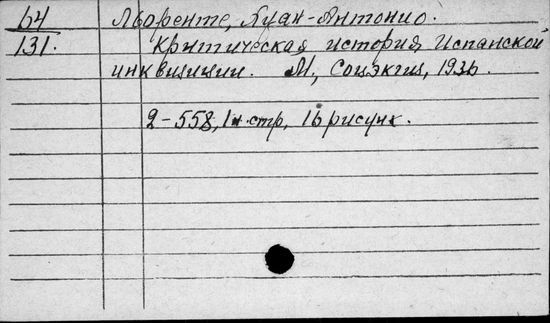 64 Льоренте, Хуан-Антонио.
131. Критическая история Испанской
инквизиции. М., Соцэкгиз, 1936.
2-558, 1 н. стр, 16 рисунк.